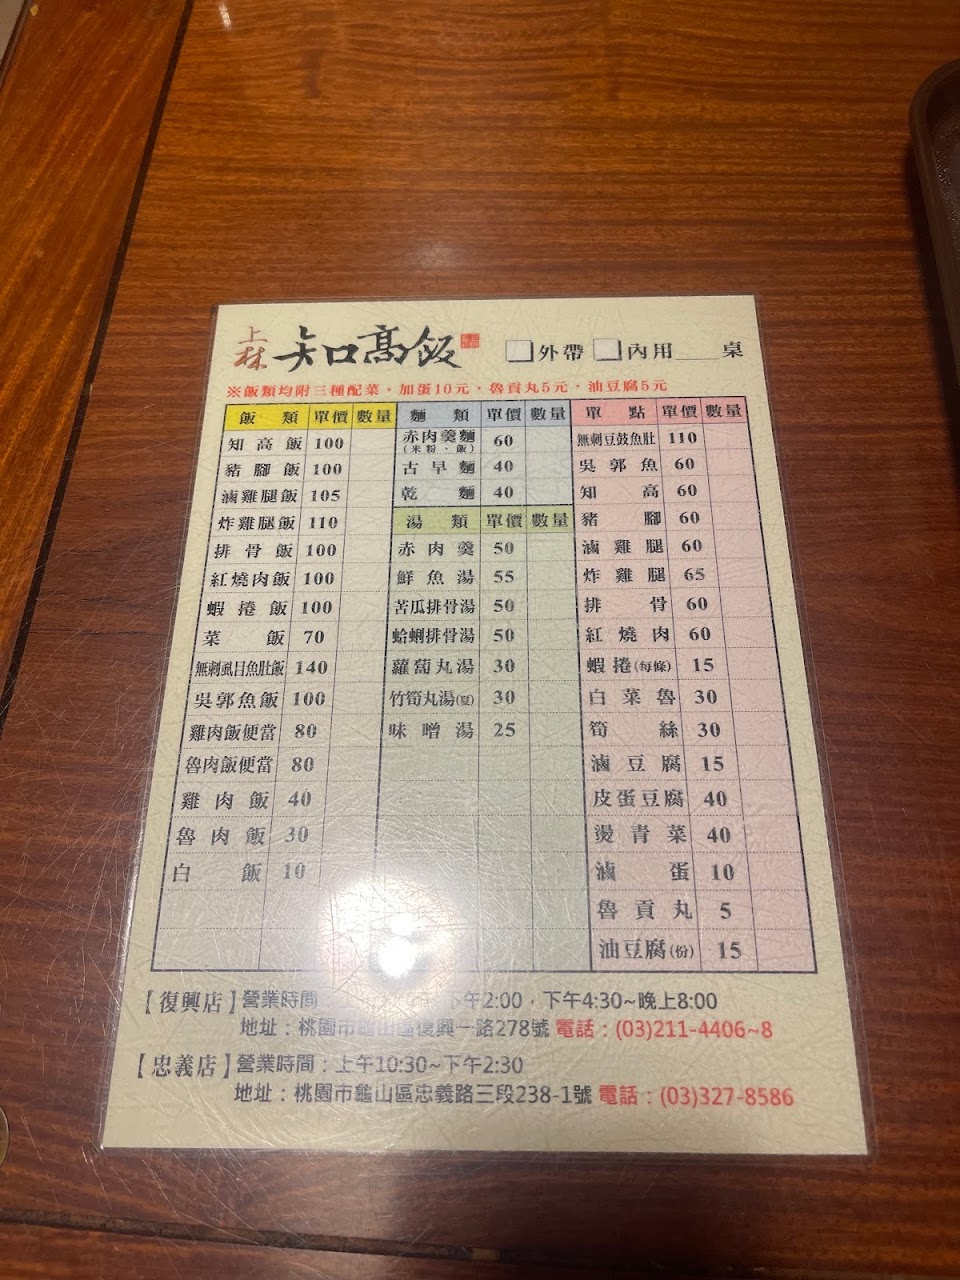 上林 知高飯
□外帶 □內用___桌
※飯類均附三種配菜。加蛋10元，魯貢丸5元，油豆腐5元
飯類 單價 數量
知高飯 100
豬腳飯 100
滷雞腿飯 105
炸雞腿飯 110
排骨飯 100
紅燒肉飯 100
蝦捲飯 100
菜飯 70
無刺虱目魚肚飯 140
吳郭魚飯 100
雞肉飯便當 80
魯肉飯便當 80
雞肉飯 40
魯肉飯 30
白飯 10
麵類 單價 數量
赤肉羹麵 60
(米粉、飯)
古早麵 40
乾麵 40
湯類 單價 數量
赤肉羹 50
鮮魚湯 55
苦瓜排骨湯 50
蛤蜊排骨湯 50
蘿蔔丸湯 30
竹筍丸湯(夏) 30
味噌湯 25
單點 單價 數量
無刺豆鼓魚肚 110
吳郭魚 60
知高 60
豬腳 60
滷雞腿 60
炸雞腿 65
排骨 60
紅燒肉 60
蝦捲(每條) 15
白菜魯 30
筍絲 30
滷豆腐 15
皮蛋豆腐 40
燙青菜 40
滷蛋 10
魯貢丸 5
油豆腐(份) 15
【復興店】營業時間： 下午2:00，下午4:30~晚上8:00
地址：桃園市龜山區復興一路278號 電話：(03)211-4406~8
【忠義店】營業時間：上午10:30~下午2:30
地址：桃園市龜山區忠義路三段238-1號 電話：(03)327-8586